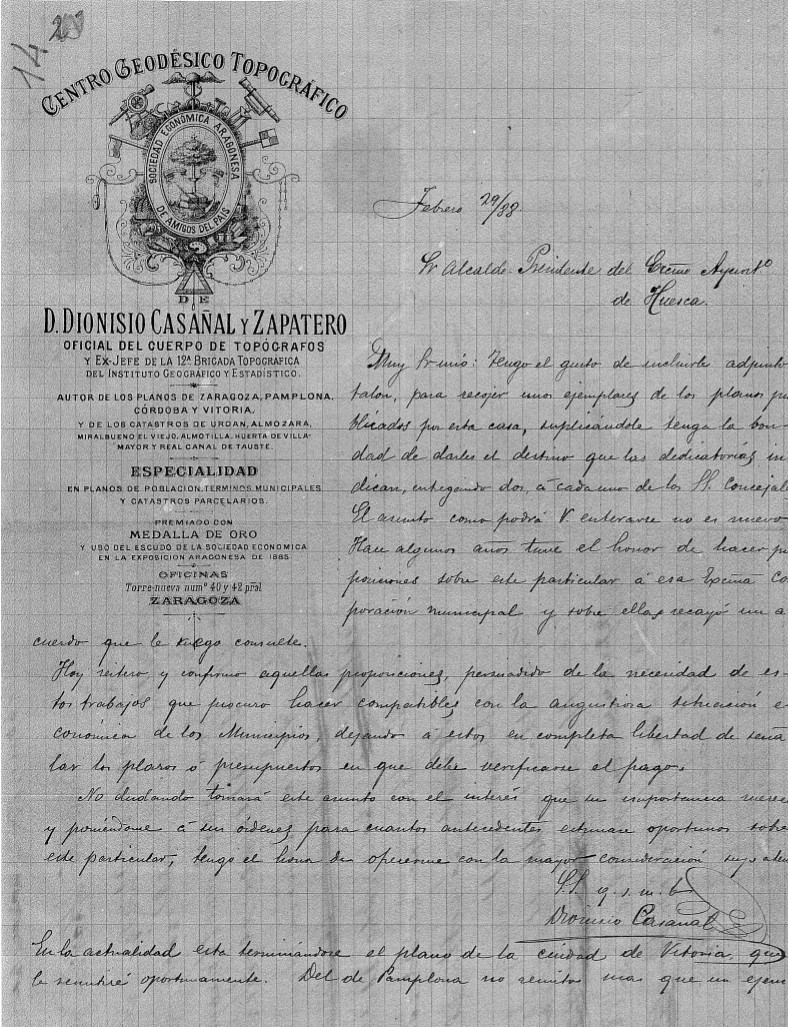 14 2
CENTRO GEODÉSICO TOPOGRÁFICO
SOCIEDAD ECONÓMICA ARAGONESA
DE AMIGOS DEL PAIS
DE
D. DIONISIO CASAÑAL Y ZAPATERO
OFICIAL DEL CUERPO DE TOPÓGRAFOS
Y EX-JEFE DE LA 12ª BRIGADA TOPOGRÁFICA
DEL INSTITUTO GEOGRÁFICO Y ESTADÍSTICO.
AUTOR DE LOS PLANOS DE ZARAGOZA, PAMPLONA,
CÓRDOBA Y VITORIA,
Y DE LOS CATASTROS DE URDAN, ALMOZARA,
MIRALBUENO EL VIEJO, ALMOTILLA, HUERTA DE VILLA-
MAYOR Y REAL CANAL DE TAUSTE.
ESPECIALIDAD
EN PLANOS DE POBLACION, TERMINOS MUNICIPALES
Y CATASTROS PARCELARIOS.
PREMIADO CON
MEDALLA DE ORO
Y USO DEL ESCUDO DE LA SOCIEDAD ECONOMICA
EN LA EXPOSICION ARAGONESA DE 1885
OFICINAS
Torre-nueva numº 40 y 42 pral
ZARAGOZA
Febrero 29/88.
Sr Alcalde-Presidente del Excmo Ayuntº
de Huesca.
Muy Sr mio: Tengo el gusto de incluirle adjunto
talon, para recojer unos ejemplares de los planos pu
blicados por esta casa, suplicándole tenga la bon-
dad de darles el destino que las dedicatorias in
dican, entregando dos, á cada uno de los SS. Concejal
El asunto como podrá V. enterarse no es nuevo
Hace algunos años tuve el honor de hacer pro
posiciones sobre este particular á esa Excma Co
poración municipal y sobre ellas recayó un a
cuerdo que le ruego consulte.
Hoy reitero y confirmo aquellas proposiciones, persuadido de la necesidad de es-
tos trabajos que procuro hacer compatibles con la angustiosa situación e
conómica de los Municipios, dejando á estos en completa libertad de seña
lar los plazos ó presupuestos en que debe verificarse el pago.
No dudando tomará este asunto con el interés que su importancia merece
y poniéndome á sus órdenes para cuantos antecedentes estimare oportunos sobre
este particular, tengo el honor de ofrecerme con la mayor consideración suyo aten
S.S. q. s. m. b.
Dionisio Casañal
En la actualidad esta terminándose el plano de la ciudad de Vitoria, que
le remitiré oportunamente. Del de Pamplona no remitos mas que un ejem